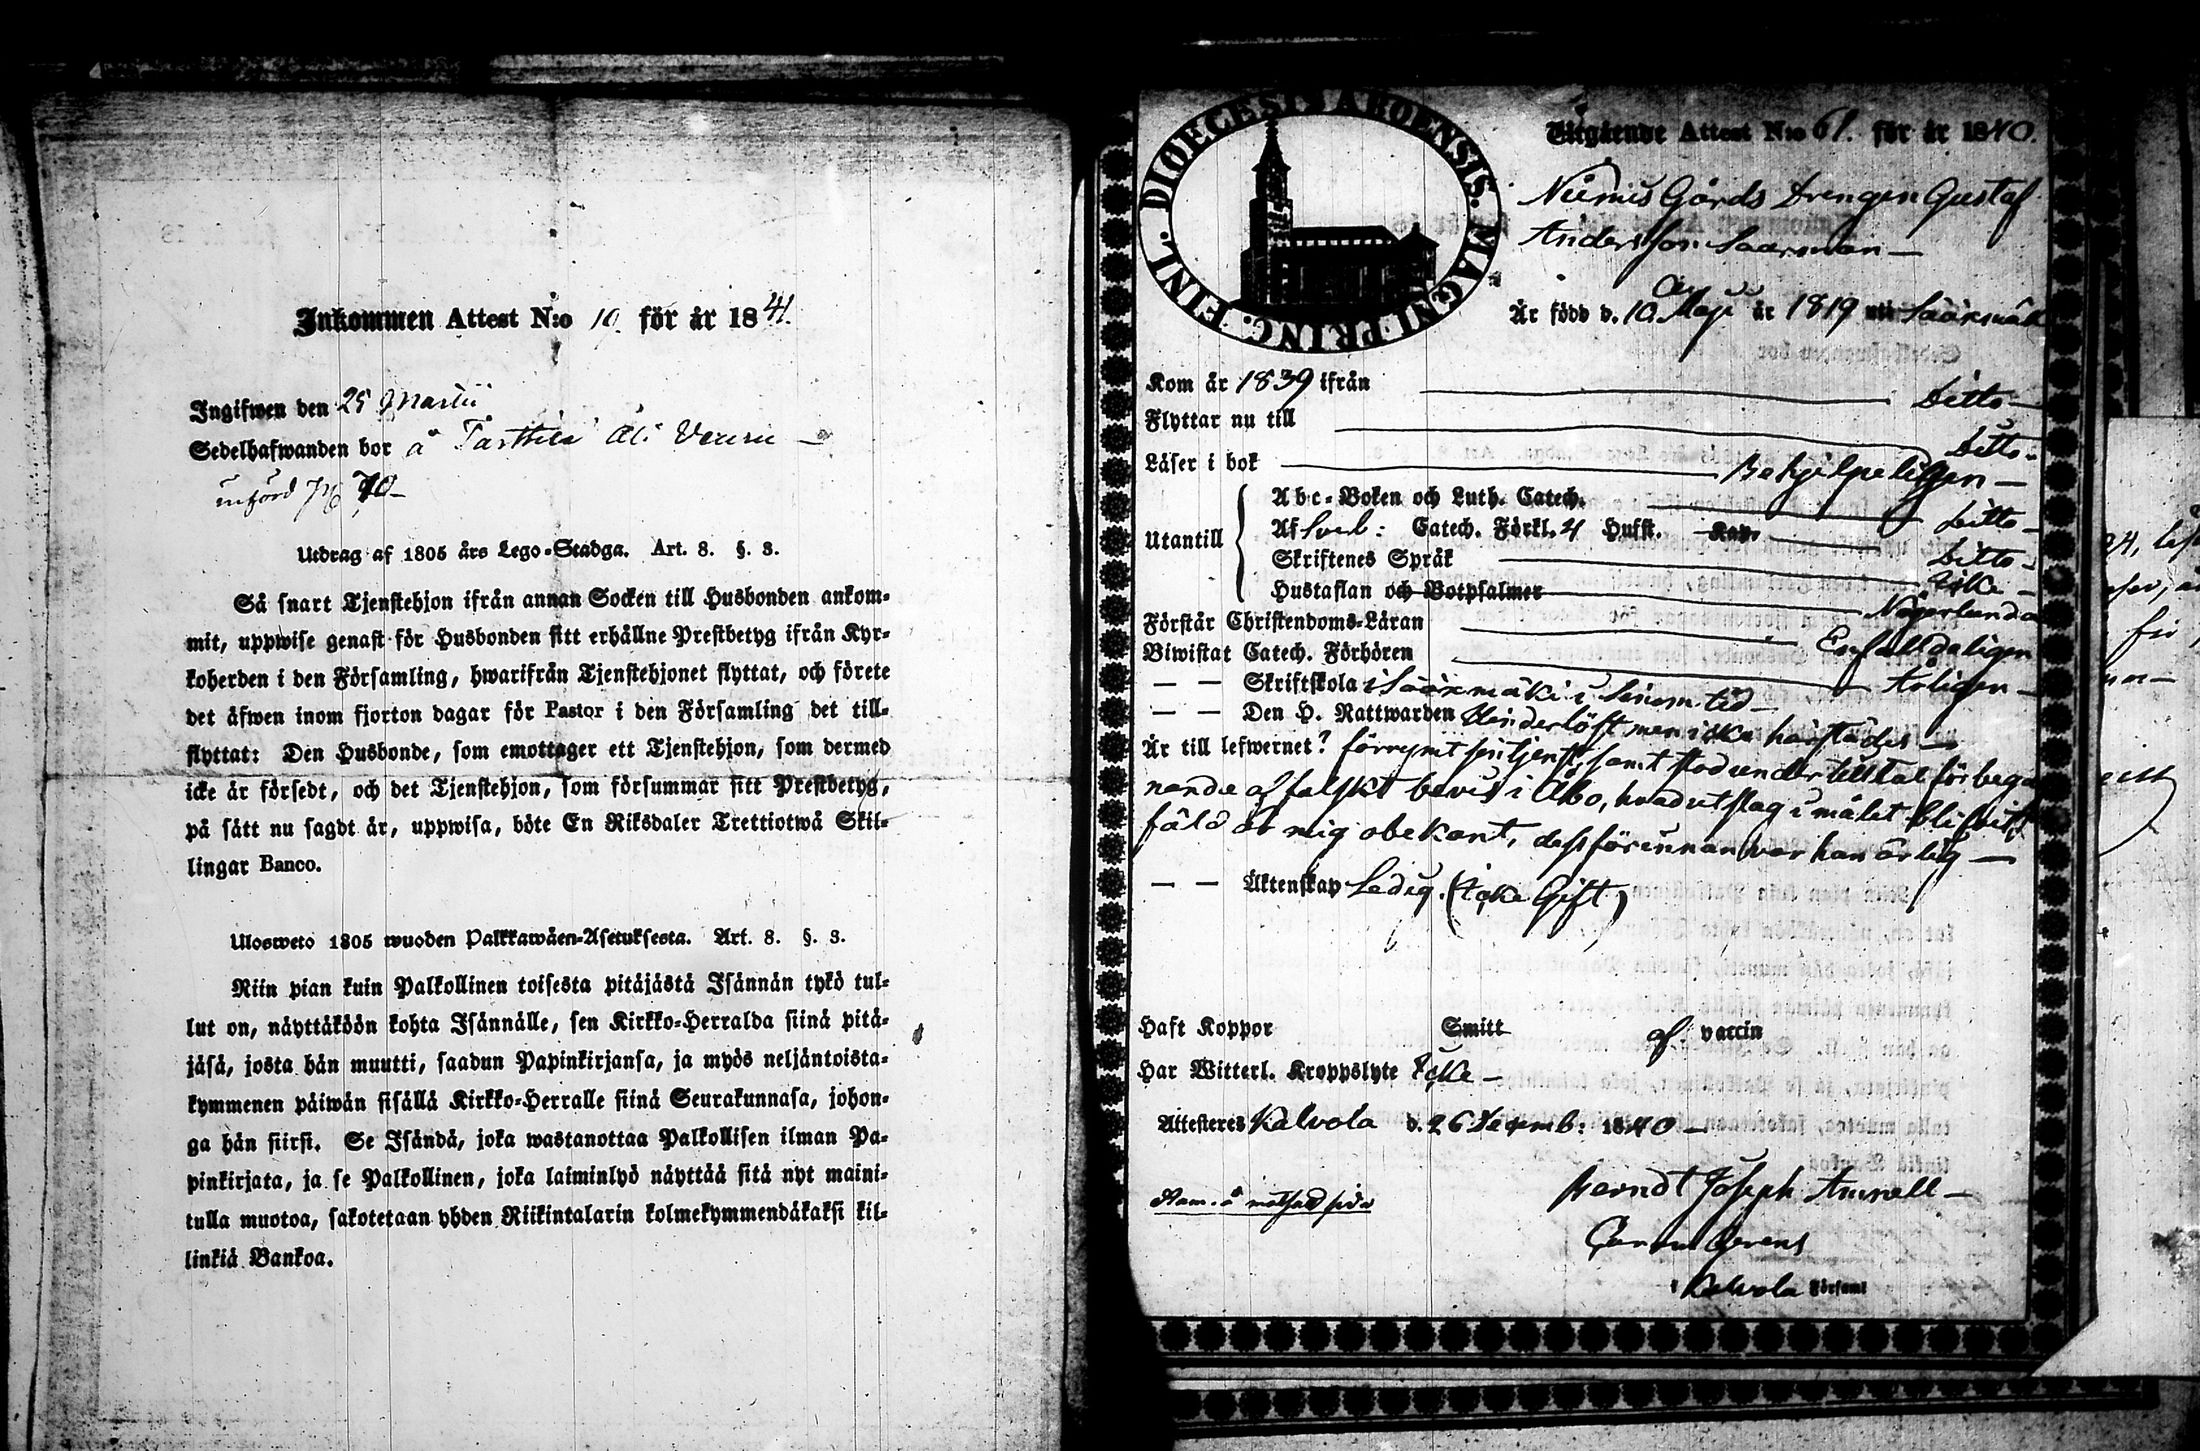 Inkommen Attest N:o 19. för år 1841.
Ingifwen den 25 Martii
Sedelhafwanden bor å
införd
Utdrag af 1805 års Lego-Stadga. Art. 8. §. 3.
Så snart Tjenstehjon ifrån annan Socken till Husbonden ankom-
mit, uppwise genast för Husbonden sitt erhållne Prestbetyg ifrån Kyr-
koherden i den Församling, hwarifrån Tjenstehjonet flyttat, och förete
det äfwen inom fjorton dagar för Pastor i den Församling det till-
flyttat: Den Husbonde, som emottager ett Tjenstehjon, som dermed
icke är försedt, och det Tjenstehjon, som försummar sitt Prestbetyg,
på sätt nu sagdt är, uppwisa, böte En Riksdaler Trettiotwå Skil-
lingar Banco.
Ulosweto 1805 wuoden Palkkawäen-Asetuksesta. Art. 8. §. 3.
Niin pian kuin Palkollinen toisesta pitäjästä Isännän tykö tul-
lut on, näyttäköön kohta Isännälle, sen Kirkko-Herralda siinä pitä-
jäsä, josta hän muutti, saadun Papinkirjansa, ja myös neljäntoista-
kymmenen päiwän sisällä Kirkko-Herralle siinä Seurakunnasa, johon-
ga hän siirsi. Se Isändä, joka wastanottaa Palkollisen ilman Pa-
pinkirjata, ja se Palkollinen, joka laiminlyö näyttää sitä nyt maini-
tulla muotoa, sakotetaan yhden Riikintalarin kolmekymmendäkaksi kil-
linkiä Bankoa.
DIOECESIS ABOENSIS. MAGNI PRINC. FINL.
Utgående Attest N:o 61. för år 1840.
Niemis Gårds Drengen Gustaf
Andersson Saarman
Är född d. 10 Maji år 1819 uti Sääxmäki
Kom år 1839 ifrån Ditto
Flyttar nu till Ditto
Läser i bok Behjelpeligen
Utantill
Abc-Boken och Luth. Catech. Ditto
Af Sveb: Catech. Förkl. 4 Hufst. Kap. Ditto
Skriftenes Språk Icke
Hustaflan och Botpsalmer Någorlunda
Förstår Christendoms-Läran Enfalldeligen
Biwistat Catech. Förhören Årligen
— — Skriftskola i Sääxmäki i sinom tid
— — Den H. Nattwarden derlöst men icke härstädes
Är till lefwernet? förrymt sin tjenst, samt stod under tilltal för bega
nande af falskt bevis i Åbo, hvad utslag i målet blifvit
fäld är mig obekant, dessförinnan var han ärlig
— — Äktenskap Ledig. (icke Gift)
Haft Koppor Smitt af vaccin
Har Witterl. Kroppslyte Icke
Attesteres Kalvola d. 26 Septemb: 1840
Berndt Joseph Amnell
i Kalvola Församl